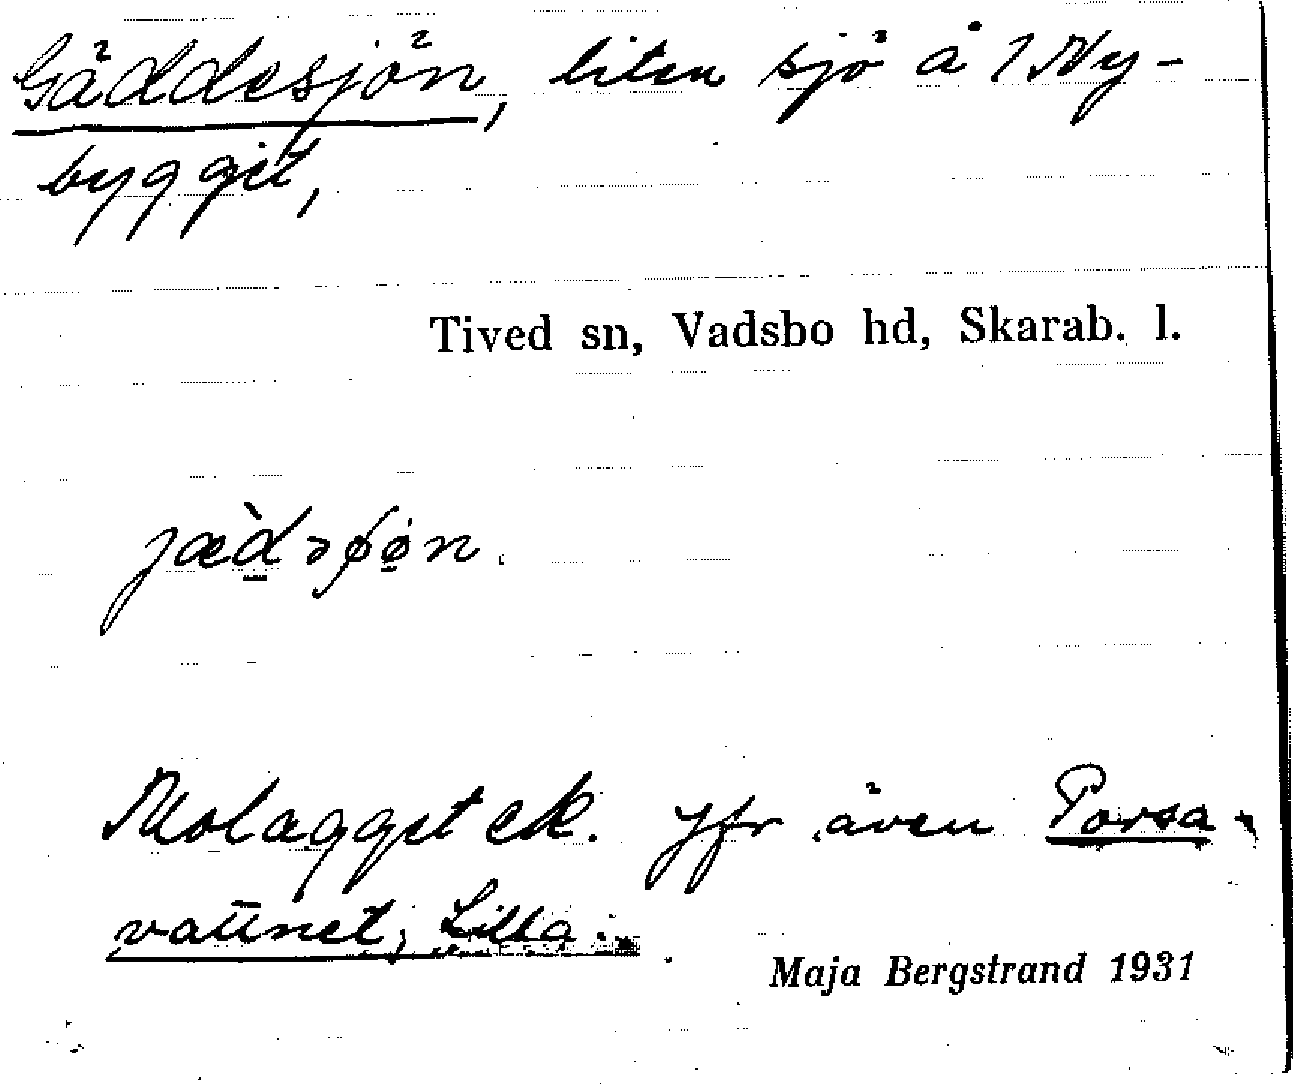 Gäddesjön, liten sjö å 1 Ny-
bygget,
Tived sn, Vadsbo hd, Skarab. l.
ek. Jfr även Porsa-
vattnet, Lilla.
Maja Bergstrand 1931